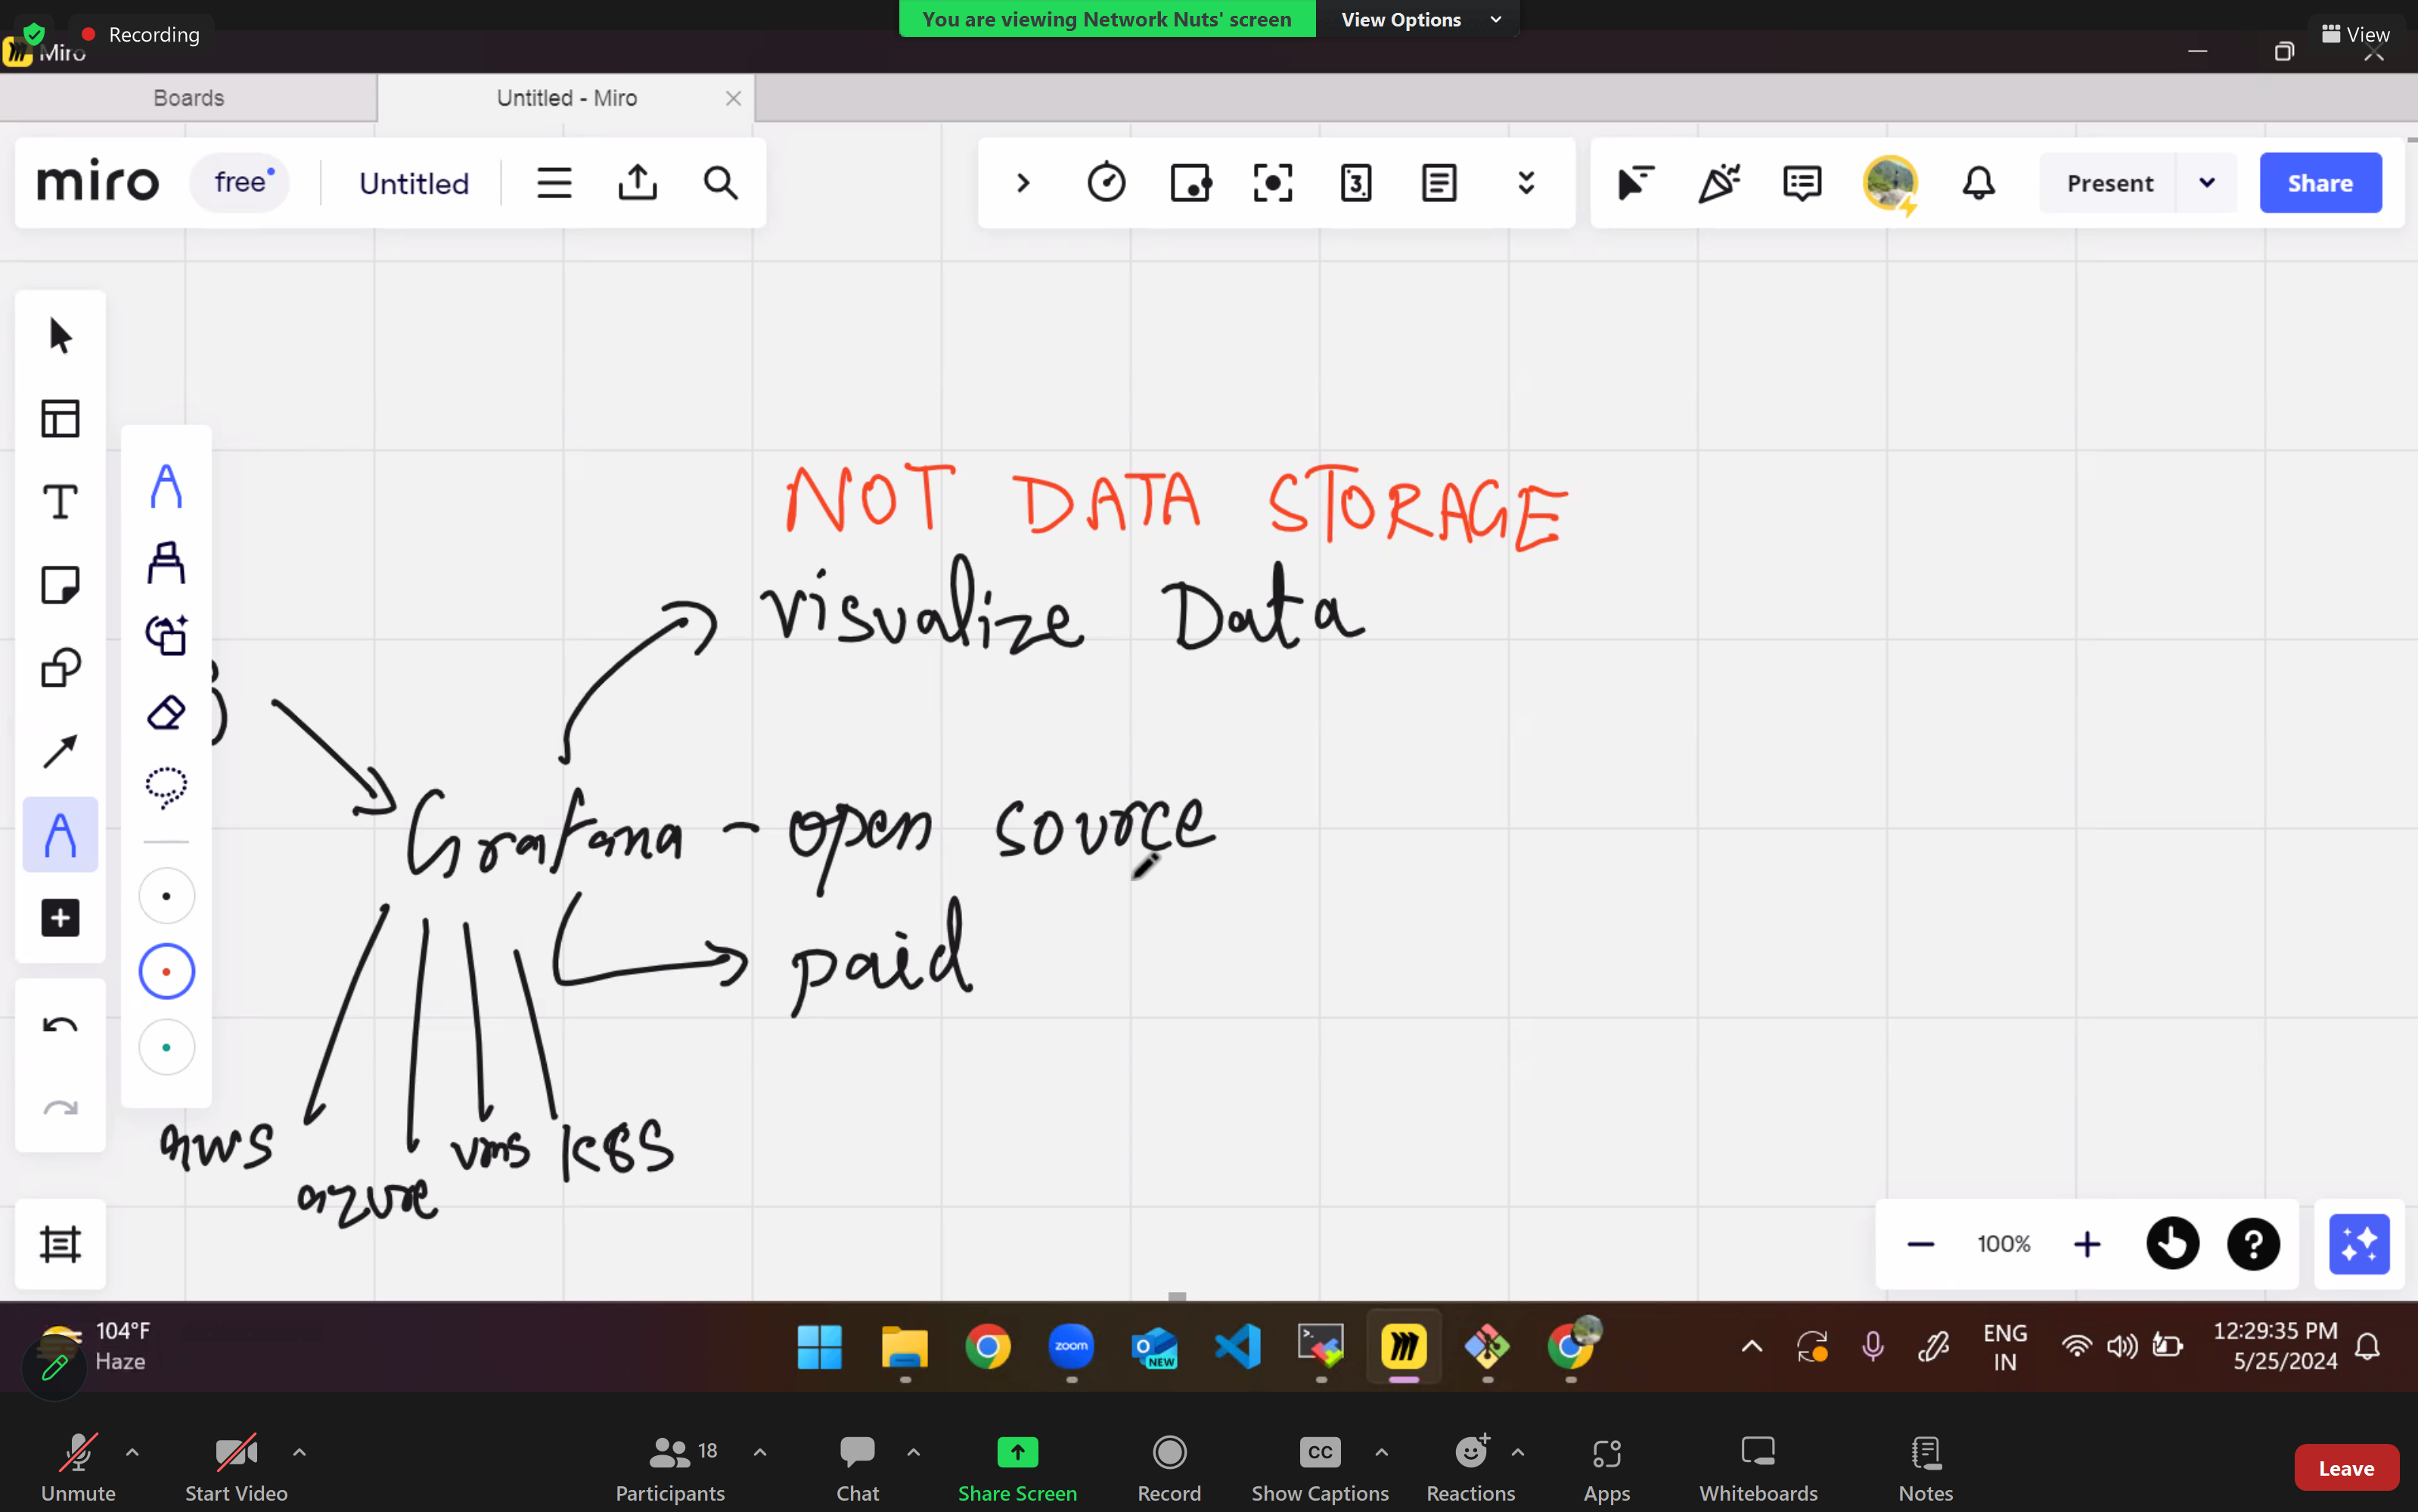 You are viewing Network Nuts' screen View Options
Recording
View
Miro
Boards Untitled - Miro
miro free Untitled Present Share
NOT DATA STORAGE
visualize Data
Grafana - open source
paid
aws vms k8s
azure
100%
104°F
Haze
zoom
NEW
ENG
IN
12:29:35 PM
5/25/2024
18
CC
Unmute Start Video Participants Chat Share Screen Record Show Captions Reactions Apps Whiteboards Notes Leave